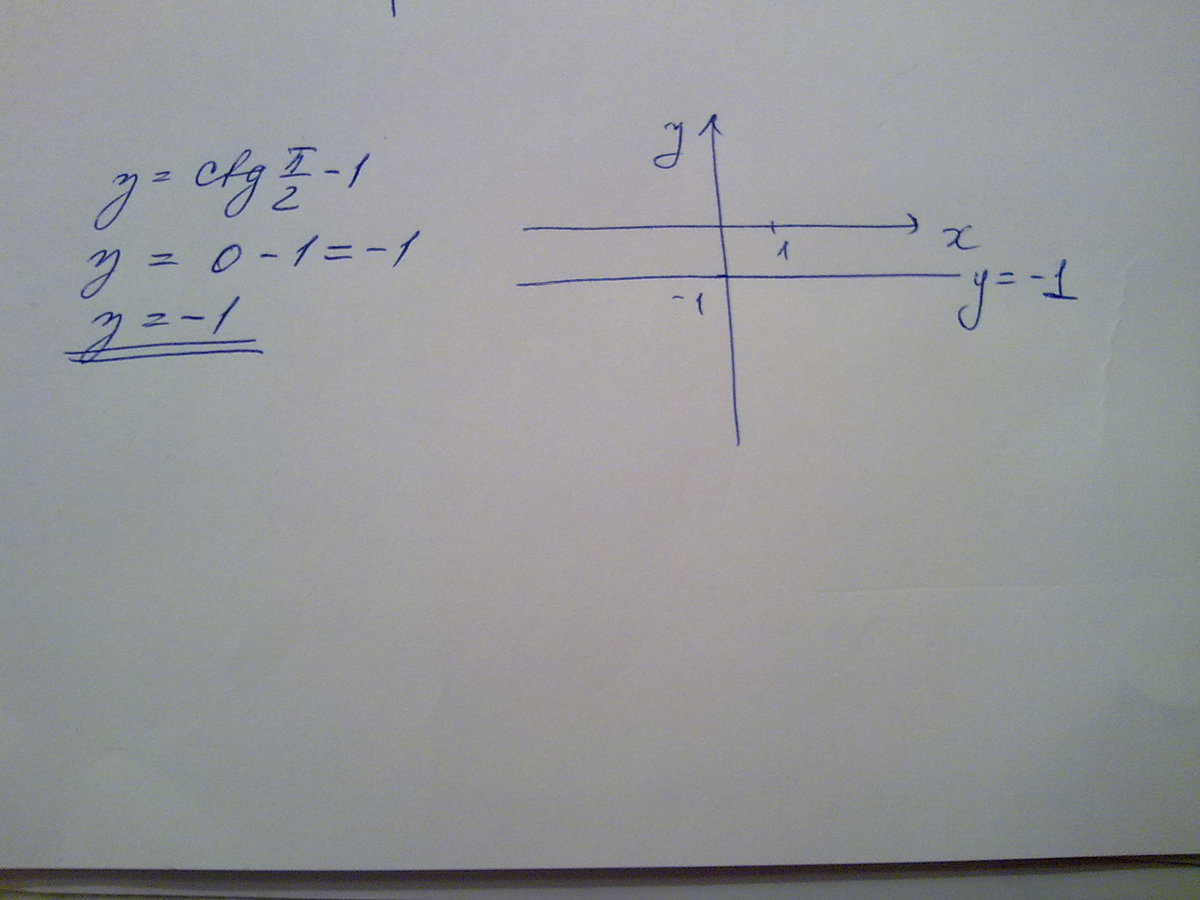 y = ctg π/2 - 1
y = 0 - 1 = -1
y = -1
y
x
1
-1
y = -1